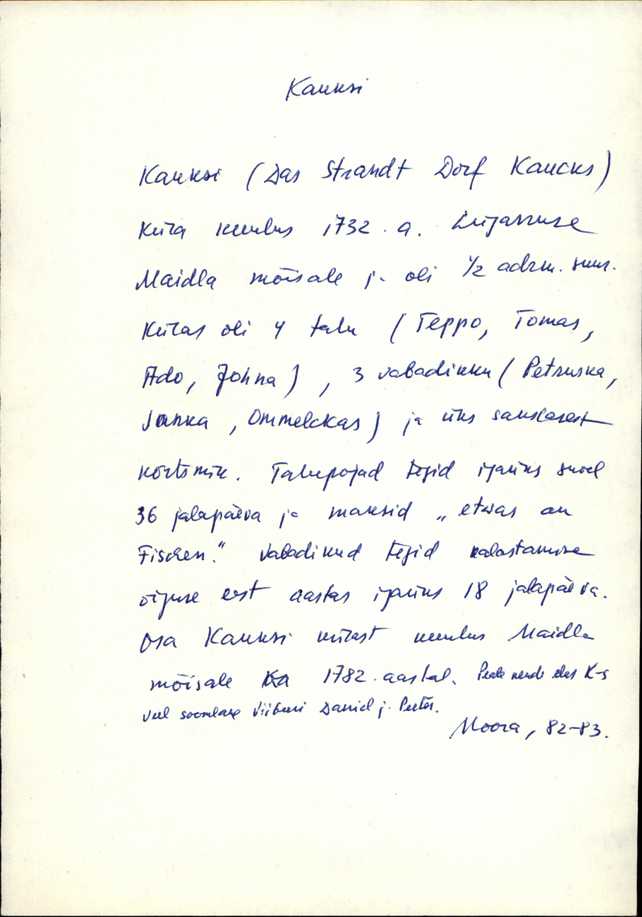 Kauksi
Kauksi (Das Strandt Dorf Kaucks)
küla kuulus 1732. a. Lüganuse
Maidla mõisale ja oli 1/2 adrm. suur.
Külas oli 4 talu (Teppo, Tomas,
Ado, Johna), 3 vabadikku (Petruska,
Janka, Ommelckas) ja üks sakslasest
kõrtsmik. Talupojad tegid igaüks suvel
36 jalapäeva ja maksid „etwas an
Fischen.“ Vabadikud tegid kalastamise
õiguse eest aastas igaüks 18 jalapäeva.
Osa Kauksi külast kuulus Maidla
mõisale ka 1782. aastal. Peale nende elas K-s
veel soomlane Viiburi Daniel j. Peeter.
Moora, 82-83.